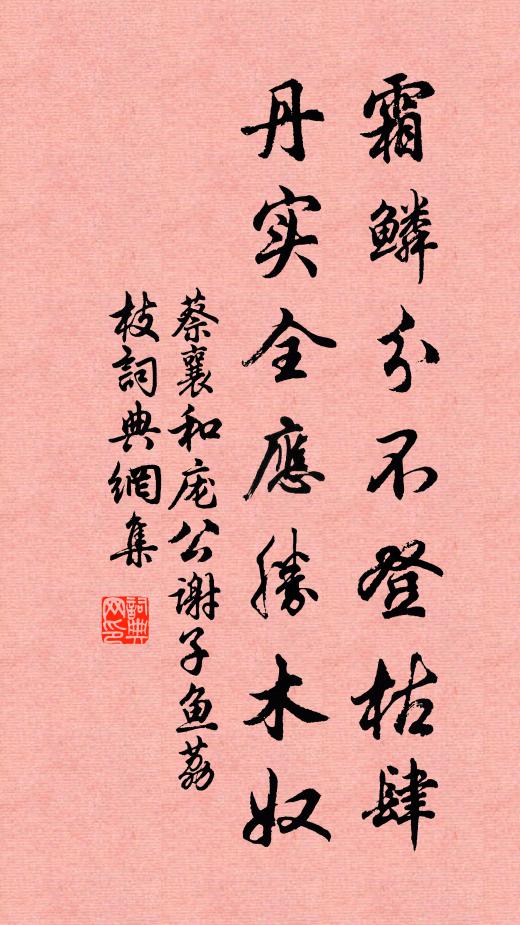 霜鳞分不登枯肆
丹实全應勝木奴
蔡襄和庞公谢子鱼荔
枝詞典網集
詞典網印